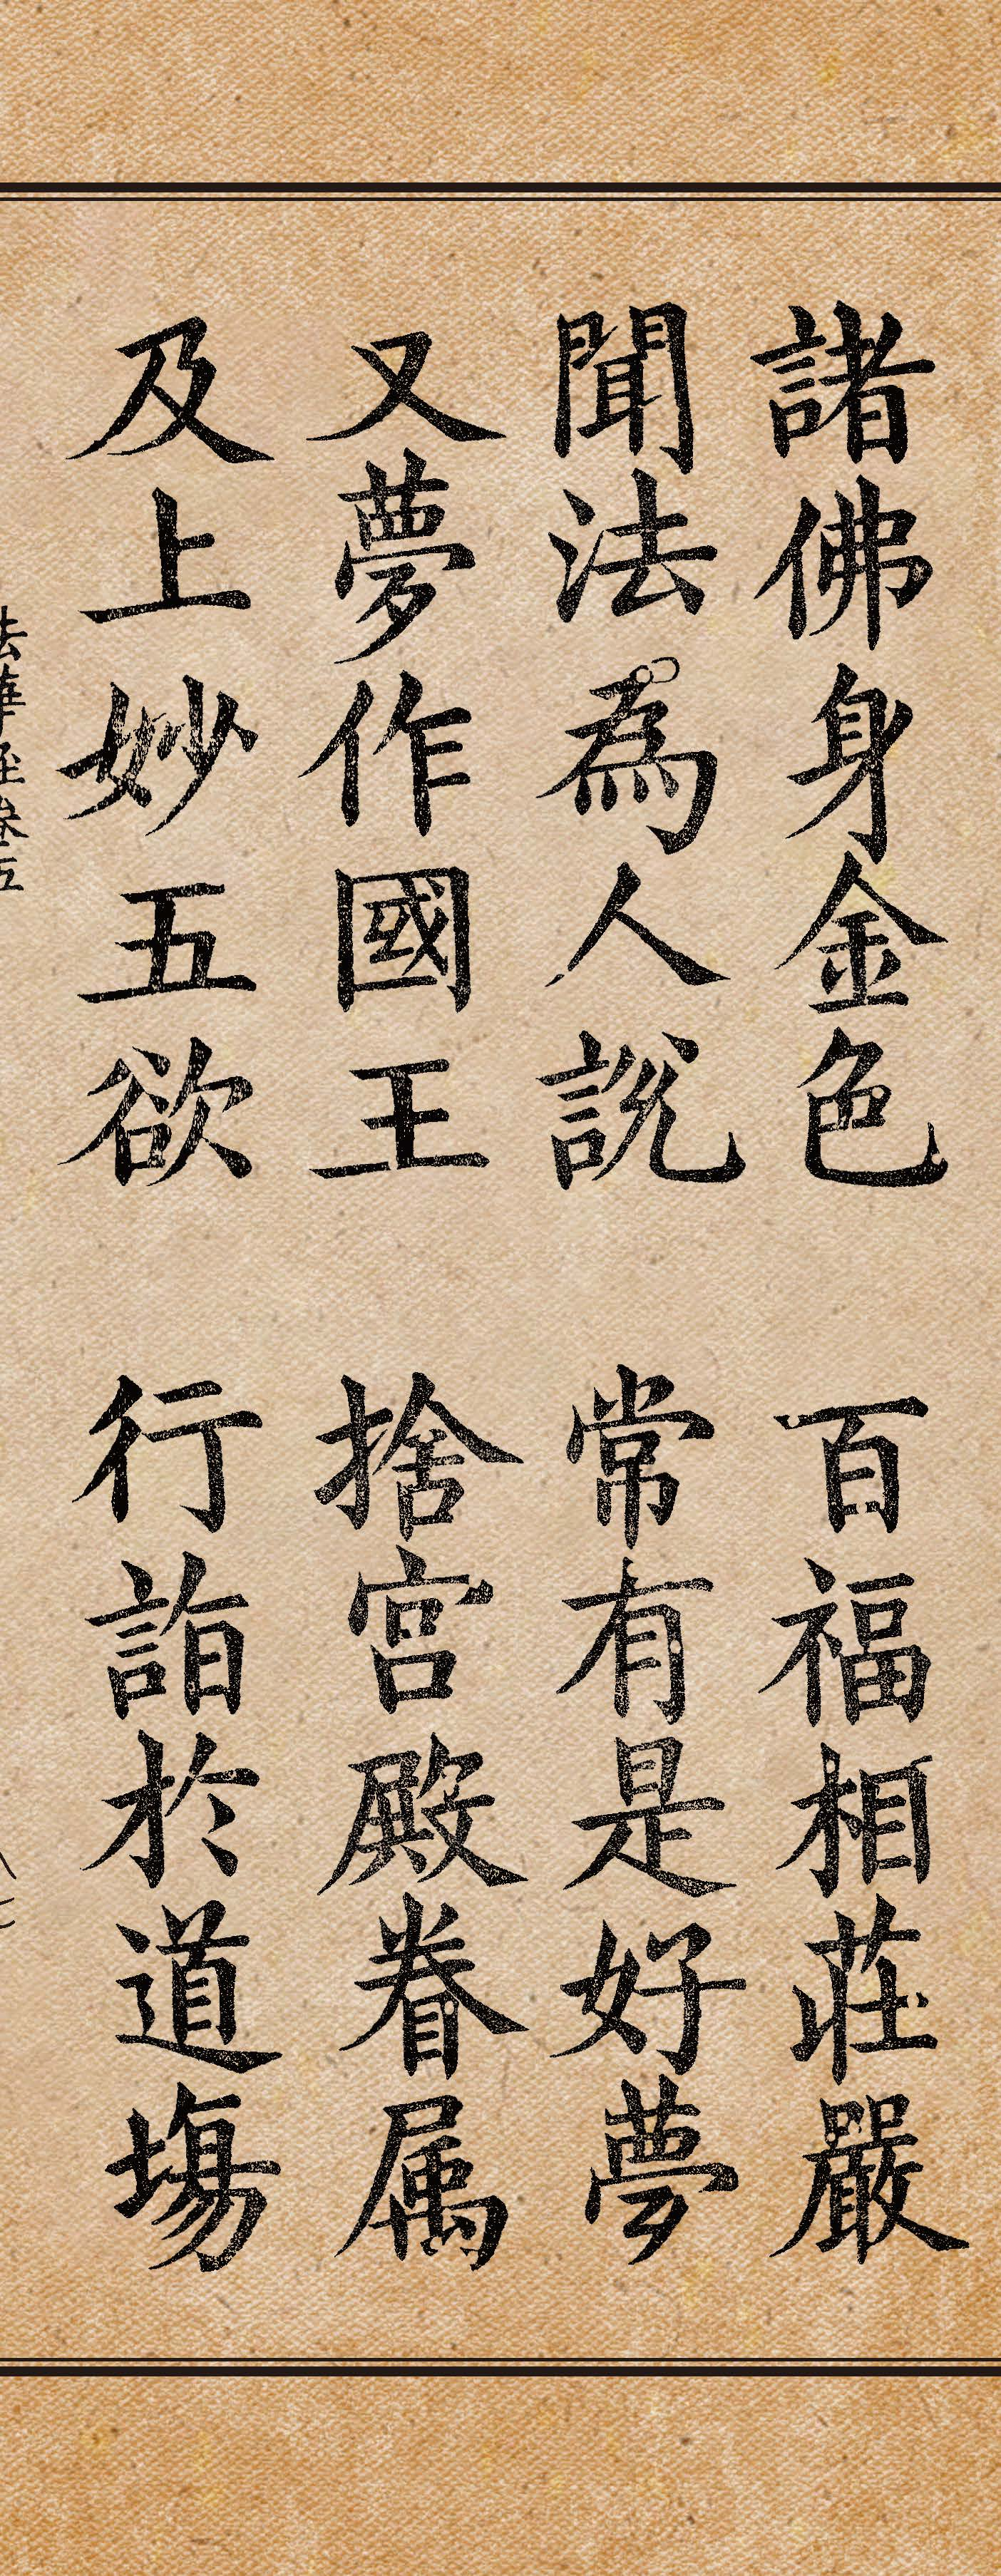 諸佛身金色 百福相莊嚴
聞法為人說 常有是好夢
又夢作國王 捨宮殿眷属
及上妙五欲 行詣於道場
法華經卷五